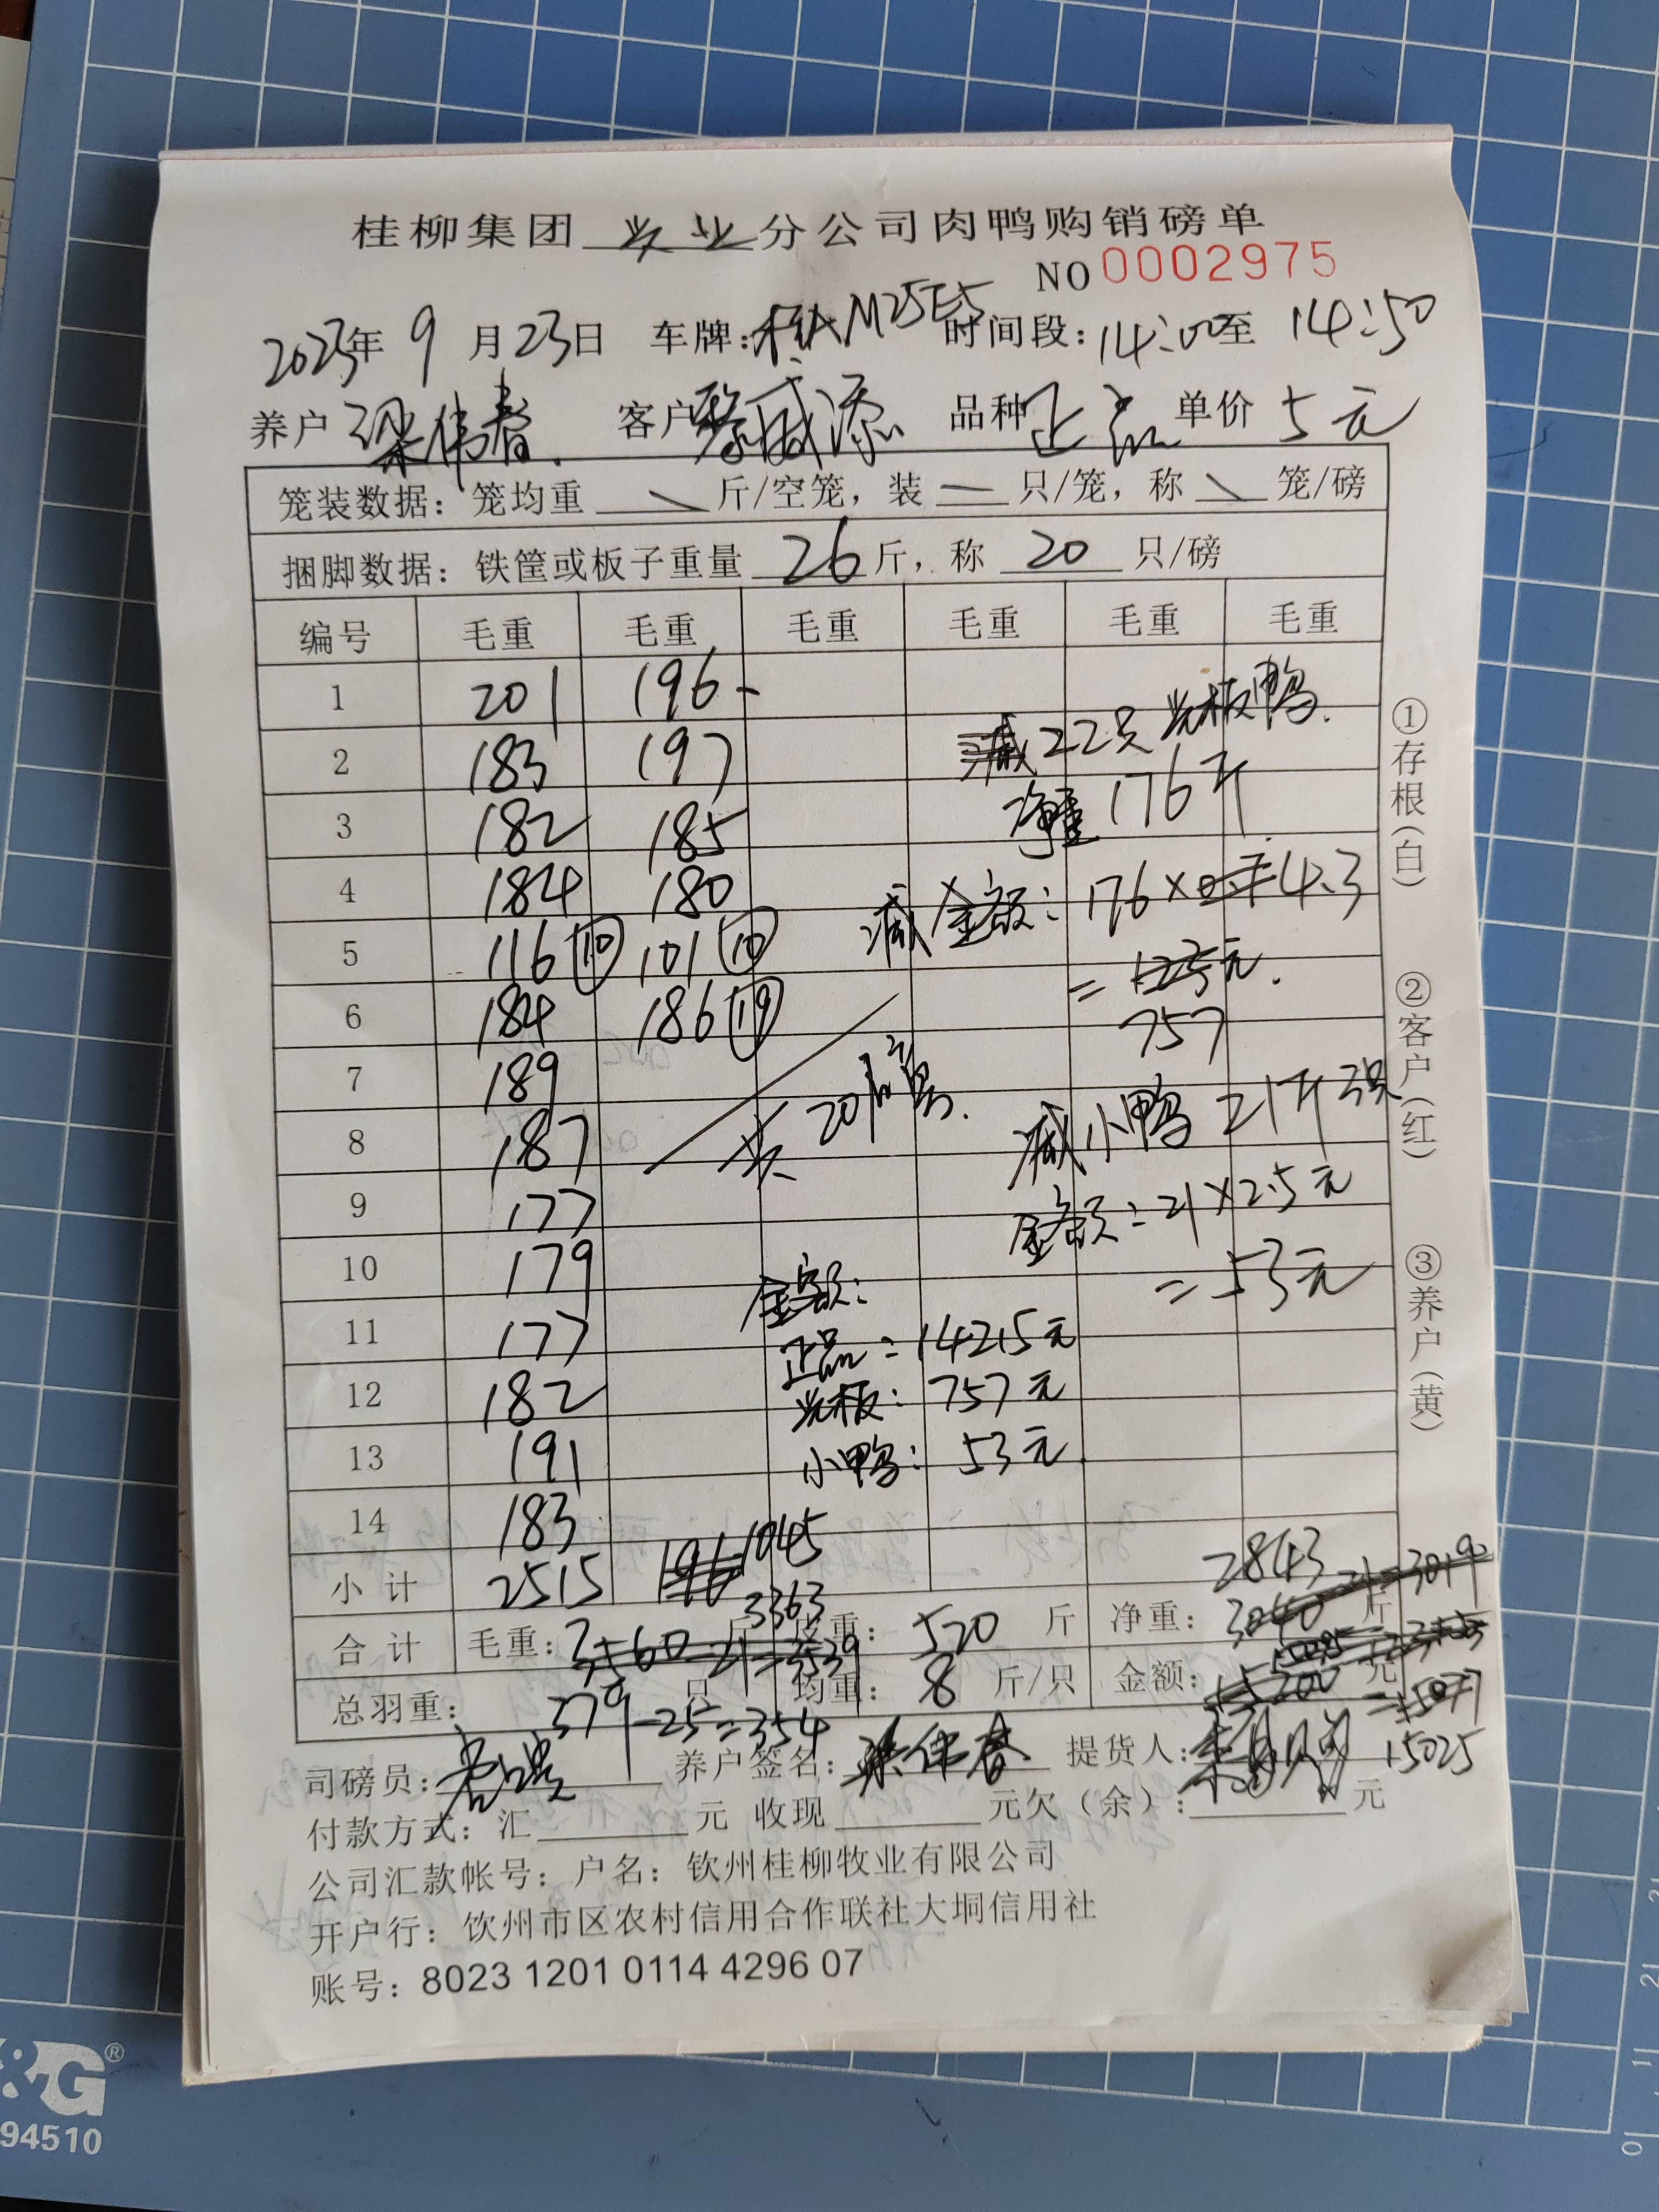 桂柳集团 兴业 分公司肉鸭购销磅单
NO 0002975
2023年 9 月 23日 车牌:桂KM25E5 时间段:14:00至 14:50
养户 梁伟春 客户 黎威添 品种 正品 单价 5元
笼装数据: 笼均重 斤/空笼, 装 只/笼, 称 笼/磅
捆脚数据: 铁筐或板子重量 26 斤, 称 20 只/磅
编号 毛重 毛重 毛重 毛重 毛重 毛重
1 201 196
2 183 197 减22只光板鸭
3 182 185 净重176斤
4 184 180 减金额: 176× 4.3
5 116⑩ 101⑩ = 125元.
6 184 186⑲ 757
7 189 共20磅
8 187 减小鸭21斤3只
9 177 金额=21×2.5元
10 179 =53元
金额:
11 177 正品=14215元
12 182 光板: 757元
13 191 小鸭: 53元
14 183
小计 2515 1045 2843
3363
合计 毛重: 3560-21=3539 斤 皮重: 520 斤 净重: 3040-21=3019 斤
总羽重: 379-25=354 只 均重: 8 斤/只 金额: 15200 元 =15077
15025
司磅员: 养户签名: 梁伟春 提货人:
付款方式: 汇 元 收现 元欠(余): 元
公司汇款帐号: 户名: 钦州桂柳牧业有限公司
开户行: 钦州市区农村信用合作联社大垌信用社
账号: 8023 1201 0114 4296 07
①存根(白)
②客户(红)
③养户(黄)
&G®
94510